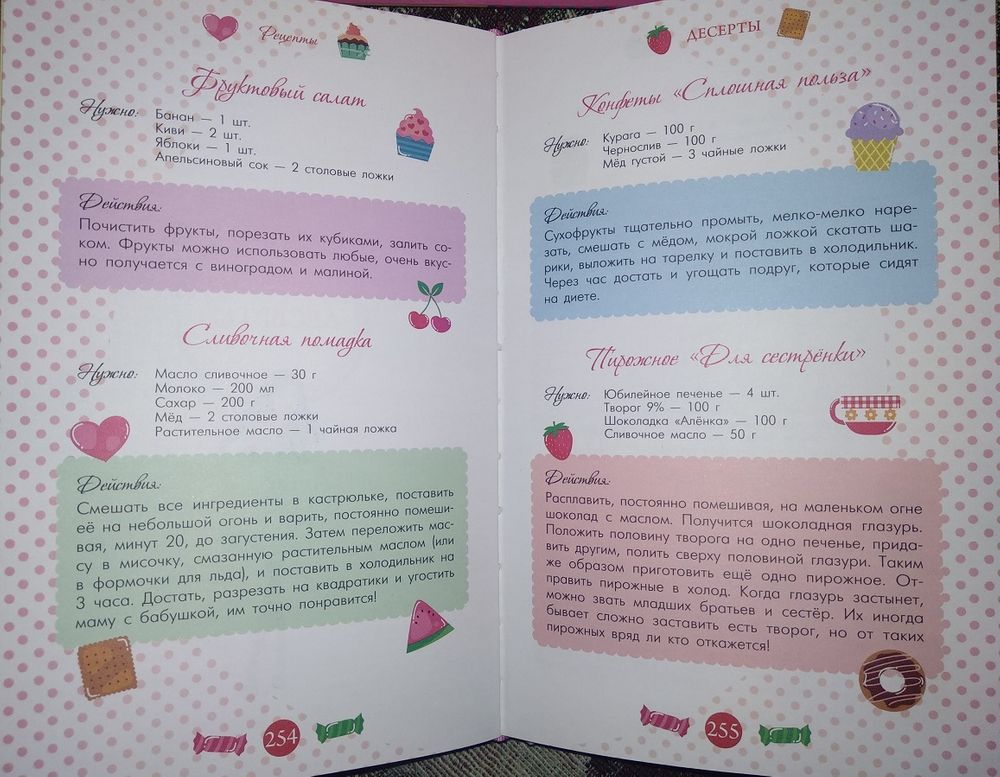 Рецепты
Фруктовый салат
Нужно:
Банан — 1 шт.
Киви — 2 шт.
Яблоки — 1 шт.
Апельсиновый сок — 2 столовые ложки
Действия:
Почистить фрукты, порезать их кубиками, залить со-
ком. Фрукты можно использовать любые, очень вкус-
но получается с виноградом и малиной.
Сливочная помадка
Нужно:
Масло сливочное — 30 г
Молоко — 200 мл
Сахар — 200 г
Мёд — 2 столовые ложки
Растительное масло — 1 чайная ложка
Действия:
Смешать все ингредиенты в кастрюльке, поставить
её на небольшой огонь и варить, постоянно помеши-
вая, минут 20, до загустения. Затем переложить мас-
су в мисочку, смазанную растительным маслом (или
в формочки для льда), и поставить в холодильник на
3 часа. Достать, разрезать на квадратики и угостить
маму с бабушкой, им точно понравится!
254
ДЕСЕРТЫ
Конфеты «Сплошная польза»
Нужно:
Курага — 100 г
Чернослив — 100 г
Мёд густой — 3 чайные ложки
Действия:
Сухофрукты тщательно промыть, мелко-мелко наре-
зать, смешать с мёдом, мокрой ложкой скатать ша-
рики, выложить на тарелку и поставить в холодильник.
Через час достать и угощать подруг, которые сидят
на диете.
Пирожное «Для сестрёнки»
Нужно:
Юбилейное печенье — 4 шт.
Творог 9% — 100 г
Шоколадка «Алёнка» — 100 г
Сливочное масло — 50 г
Действия:
Расплавить, постоянно помешивая, на маленьком огне
шоколад с маслом. Получится шоколадная глазурь.
Положить половину творога на одно печенье, прида-
вить другим, полить сверху половиной глазури. Таким
же образом приготовить ещё одно пирожное. От-
править пирожные в холод. Когда глазурь застынет,
можно звать младших братьев и сестёр. Их иногда
бывает сложно заставить есть творог, но от таких
пирожных вряд ли кто откажется!
255